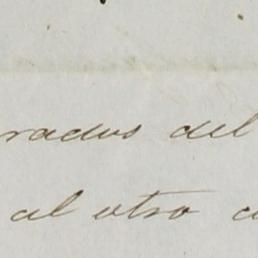 rados del
al otro